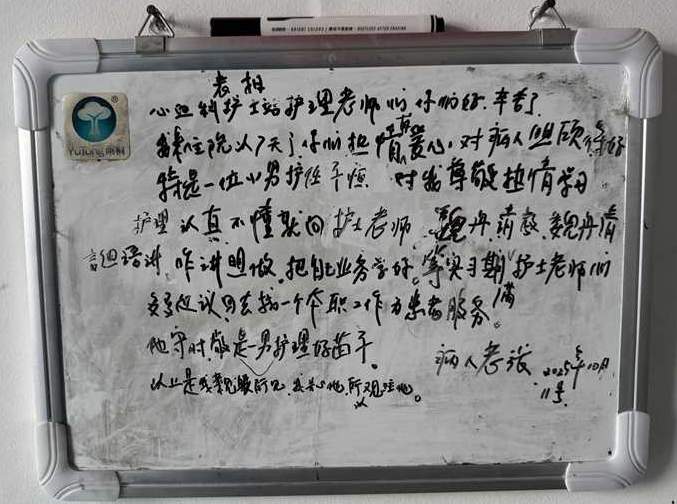 表相
心血科护士站护理老师们你们好.辛苦了
我来住院以7天了你们热情真爱心,对病人照顾得好
特是一位小男护任千恒 对我尊敬热情学习
护理认真不懂就问护士老师 魏丹 请教 魏丹倩
组培讲.咋讲咋做.把自己业务学好.等实习期满护士老师们
建议回去找一个本职工作为患者服务.
他守时敬是一男护理好苗子.
病人老张 2025年10月
11号
以上是我亲眼所见 我关心他.所以观注他。